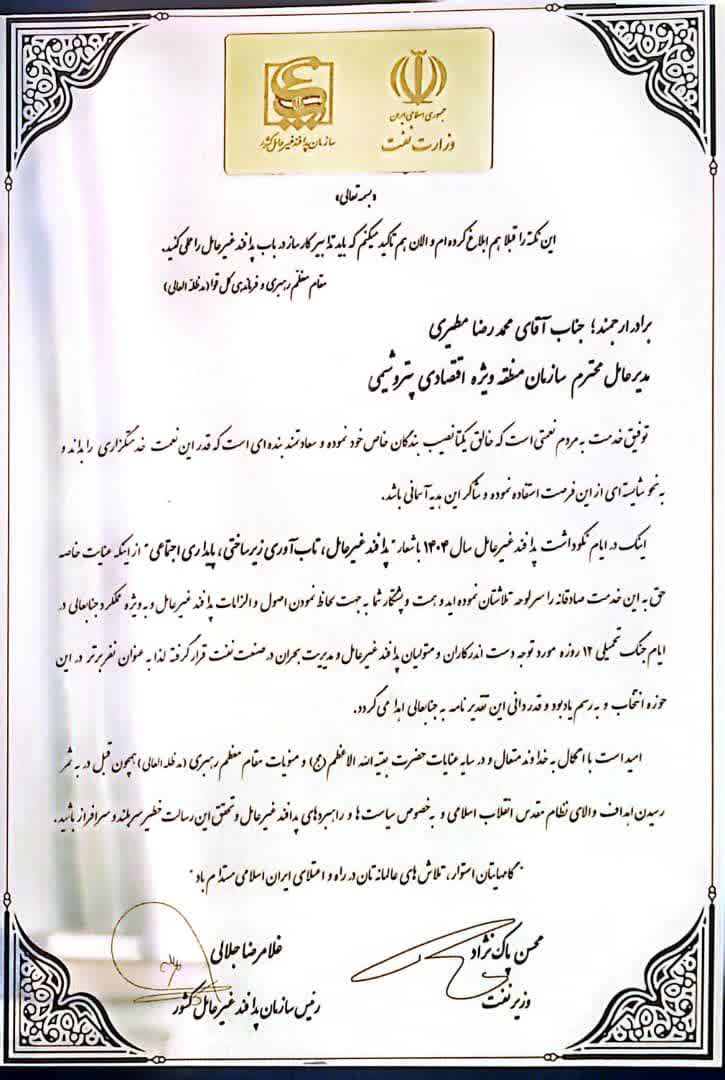 جمهوری اسلامی ایران
وزارت نفت
سازمان پدافند غیرعامل کشور
«بسمه تعالی»
این نکته را قبلا هم ابلاغ کرده ام و الان هم تاکید میکنم که باید تدابیر کارساز در باب پدافند غیرعامل را عملی کنید.
مقام معظم رهبری و فرماندهی کل قوا (مدظله العالی)
برادر ارجمند؛ جناب آقای محمدرضا مطیری
مدیرعامل محترم سازمان منطقه ویژه اقتصادی پتروشیمی
توفیق خدمت به مردم نعمتی است که خالق یکتا نصیب بندگان خاص خود نموده و سعادتمند بنده ای است که قدر این نعمت خدمتگزاری را بداند و
به نحو شایسته ای از این فرصت استفاده نموده و شاکر این هدیه آسمانی باشد.
اینک در ایام نکوداشت پدافند غیرعامل سال ۱۴۰۴ با شعار "پدافند غیرعامل، تاب آوری زیرساختی، پایداری اجتماعی" از اینکه عنایت خاصه
حق به این خدمت صادقانه را سرلوحه تلاشتان نموده اید و همت و پشتکار شما به جهت لحاظ نمودن اصول و الزامات پدافند غیرعامل و به ویژه عملکرد جنابعالی در
ایام جنگ تحمیلی ۱۲ روزه مورد توجه دست اندرکاران و متولیان پدافند غیرعامل و مدیریت بحران در صنعت نفت قرار گرفته لذا به عنوان نفر برتر در این
حوزه انتخاب و به رسم یادبود و قدردانی این تقدیرنامه به جنابعالی اهدا می گردد.
امید است با اتکال به خداوند متعال و در سایه عنایات حضرت بقیه الله الاعظم (عج) و منویات مقام معظم رهبری (مدظله العالی) همچون قبل در به ثمر
رسیدن اهداف والای نظام مقدس انقلاب اسلامی و به خصوص سیاست ها و راهبردهای پدافند غیرعامل و تحقق این رسالت خطیر سربلند و سرافراز باشید.
"گامهایتان استوار، تلاش های عالمانه تان در راه و اعتلای ایران اسلامی مستدام باد"
محسن پاک نژاد
وزیر نفت
غلامرضا جلالی
رئیس سازمان پدافند غیرعامل کشور